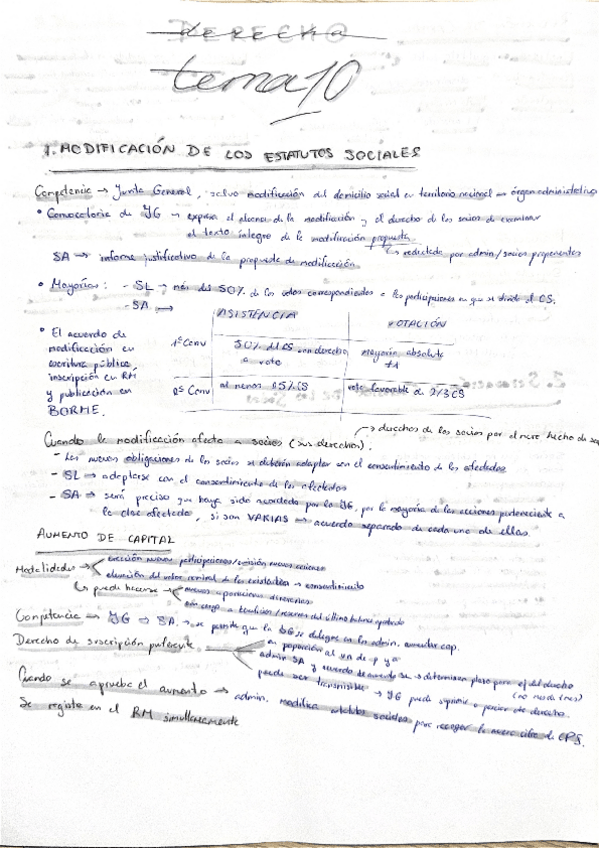 DERECHO
tema 10
1. MODIFICACIÓN DE LOS ESTATUTOS SOCIALES
Competencia → Junta General, salvo modificación del domicilio social en territorio nacional → órgano administrativo
• Convocatoria de JG → expresa el alcance de la modificación y el derecho de los socios de examinar
el texto íntegro de la modificación propuesta.
→ redactada por admin/socios proponentes
SA → informe justificativo de la propuesta de modificación
• Mayorías: - SL → más del 50% de los votos correspondientes a las participaciones en que se divide el CS.
- SA →
ASISTENCIA VOTACIÓN
1ª Conv 50% del CS con derecho a voto mayoría absoluta
2ª Conv al menos 25% CS voto favorable de 2/3 CS
• El acuerdo de
modificación en
escritura pública
inscripción en RM
y publicación en
BORME.
Cuando la modificación afecta a socios (sus derechos). → derechos de los socios por el mero hecho de
- Las nuevas obligaciones de los socios se deberán adoptar con el consentimiento de los afectados
- SL → adoptarse con el consentimiento de los afectados
- SA → será preciso que haya sido acordada por la JG, por la mayoría de las acciones perteneciente a
la clase afectada, si son VARIAS → acuerdo separado de cada una de ellas.
AUMENTO DE CAPITAL
Modalidades → creación nuevas participaciones/emisión nuevas acciones
elevación del valor nominal de las existentes → consentimiento
↳ puede hacerse → nuevas aportaciones dinerarias
con cargo a beneficios/reservas del último balance aprobado
Competencia → JG → SA → que la JG delegue en los admin. aumentar cap.
Derecho de suscripción preferente
en proporción al VN de p y a
admin SA y acuerdo de aumento SL → determinan plazo para ej del derecho
puede ser transmisible → JG puede suprimir o derecho.
Cuando se aprueba el aumento → admin. modifica estatutos sociales para recoger la nueva cifra de CPS.
Se registra en el RM simultáneamente